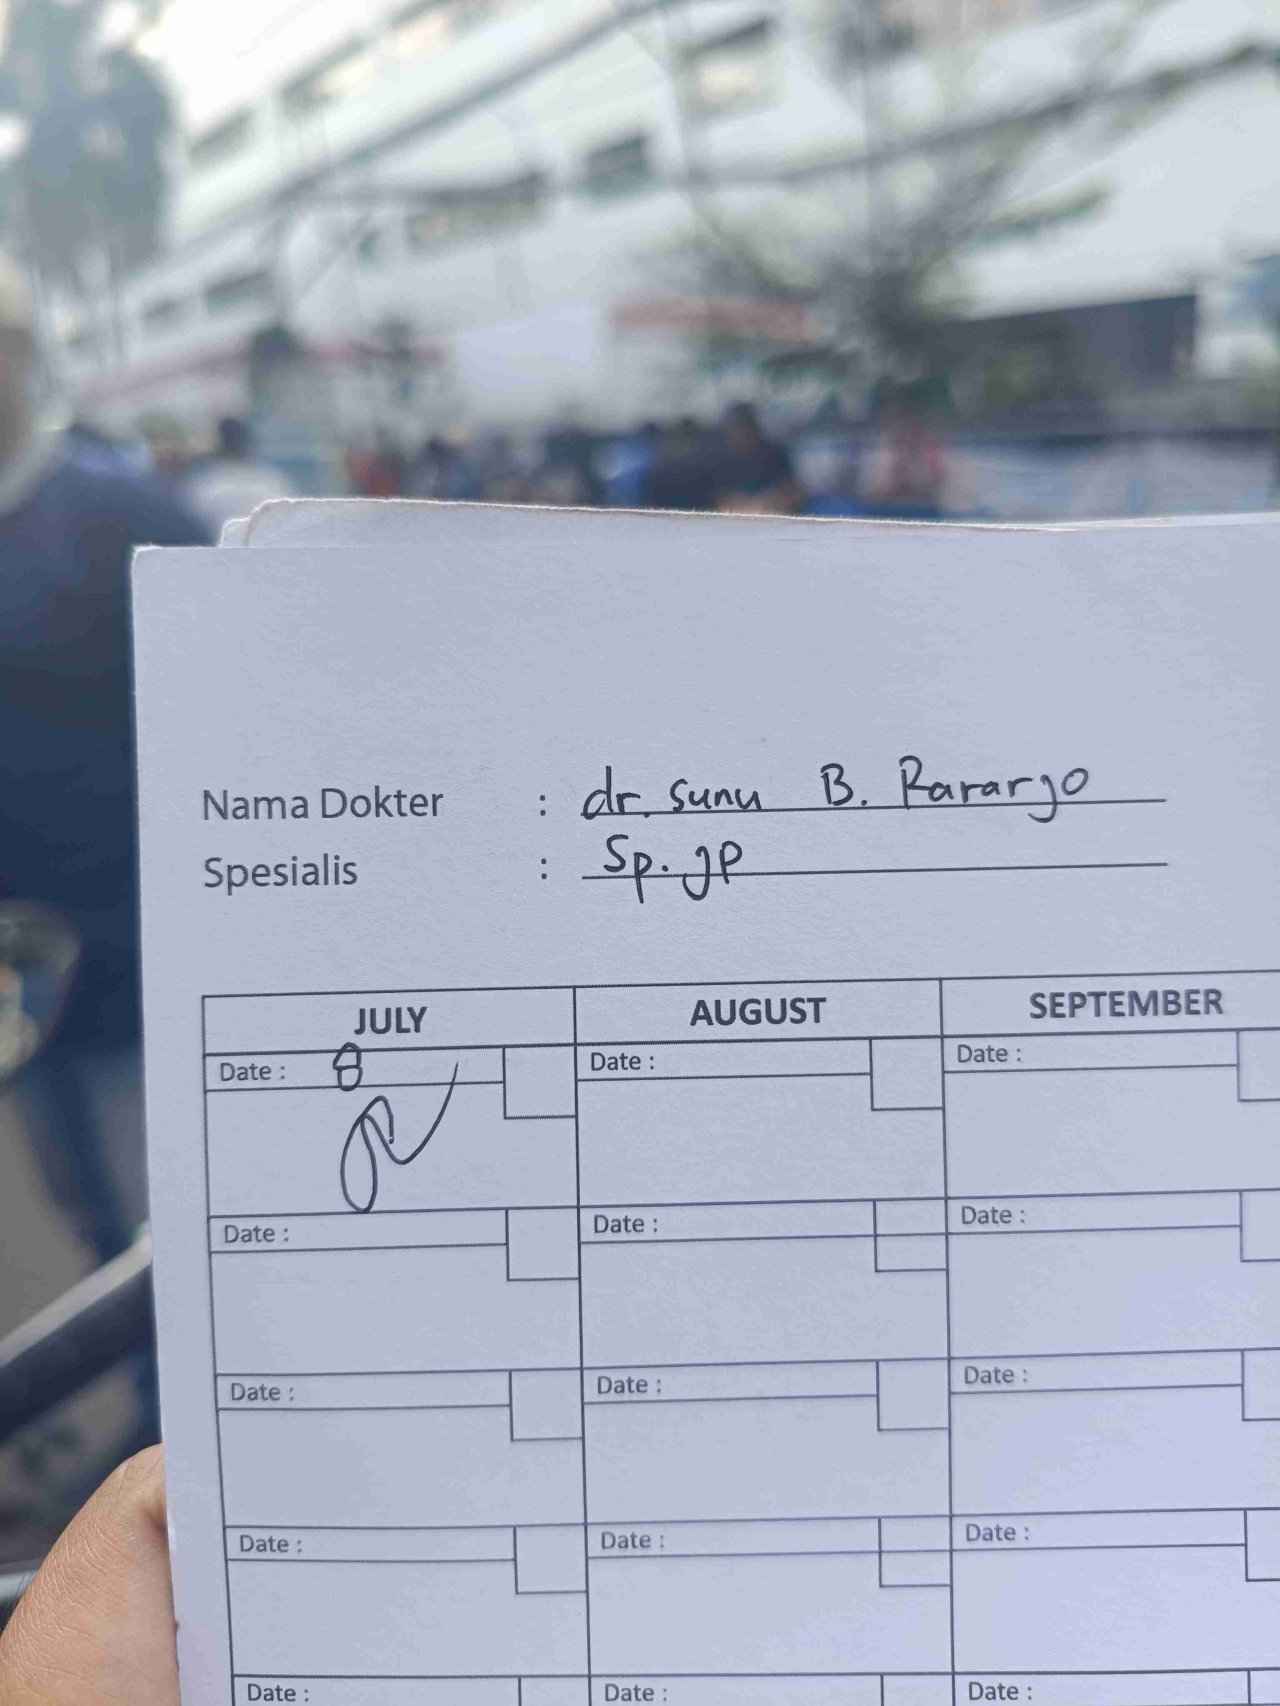 Nama Dokter : dr. Sunu B. Rararjo
Spesialis : Sp. JP
JULY AUGUST SEPTEMBER
Date : 8 Date : Date :
Date : Date : Date :
Date : Date : Date :
Date : Date : Date :
Date : Date : Date :